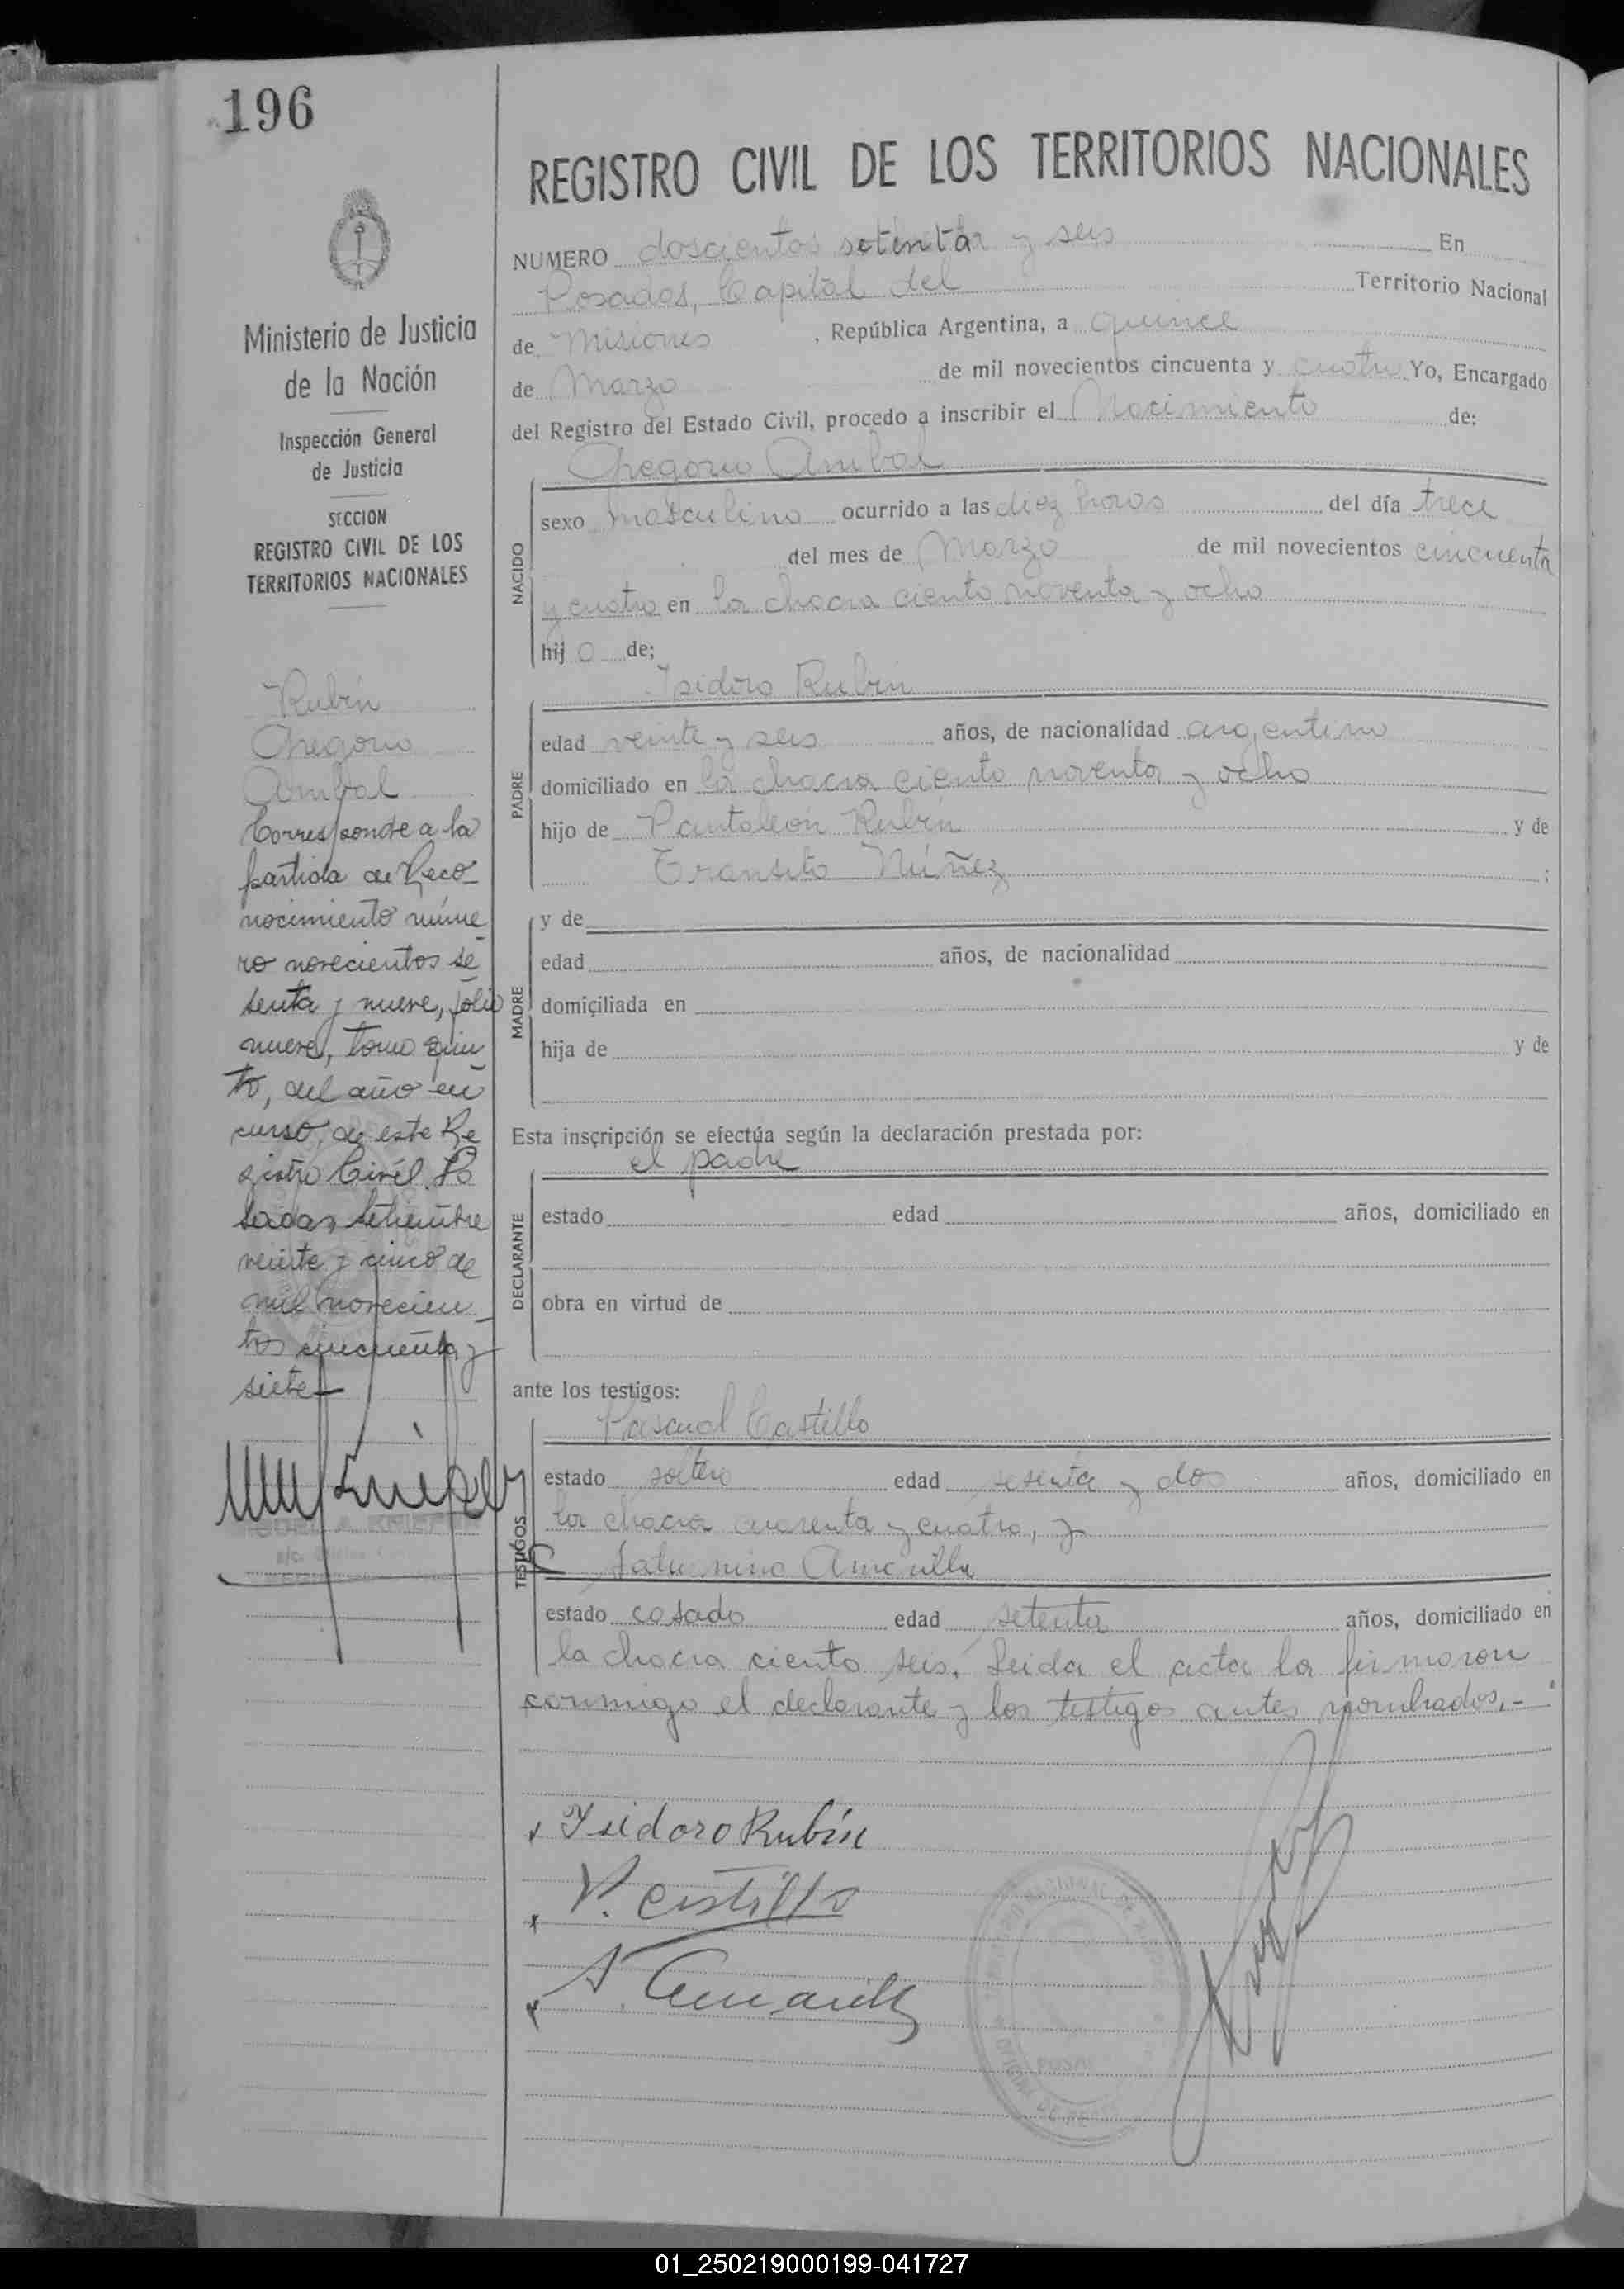 196
REGISTRO CIVIL DE LOS TERRITORIOS NACIONALES
Ministerio de Justicia
de la Nación
Inspección General
de Justicia
SECCION
REGISTRO CIVIL DE LOS
TERRITORIOS NACIONALES
Rubín
Gregorio
Anibal
Corresponde a la
partida de Reco-
nocimiento núme-
ro novecientos se-
senta y nueve, folio
nueve, tomo quin-
to, del año en
curso, de este Re
gistro Civil. Po
sadas, setiembre
veinte y cinco de
mil novecien-
tos cincuenta y
siete
NUMERO doscientos setenta y seis En
Posadas, Capital del Territorio Nacional
de Misiones, República Argentina, a quince
de Marzo de mil novecientos cincuenta y cuatro Yo, Encargado
del Registro del Estado Civil, procedo a inscribir el Nacimiento de:
Gregorio Anibal
NACIDO
sexo masculino ocurrido a las diez horas del día trece
del mes de Marzo de mil novecientos cincuenta
y cuatro en la chacra ciento noventa y ocho
hijo de:
Isidoro Rubin
PADRE
edad veinte y seis años, de nacionalidad argentino
domiciliado en la chacra ciento noventa y ocho
hijo de Pantaleón Rubín y de
Transito Núñez ;
MADRE
y de
edad años, de nacionalidad
domiciliada en
hija de y de
Esta inscripción se efectúa según la declaración prestada por:
el padre
DECLARANTE
estado edad años, domiciliado en
obra en virtud de
ante los testigos:
Pascual Castillo
TESTIGOS
estado soltero edad sesenta y dos años, domiciliado en
la chacra cuarenta y cuatro, y
Saturnino Amarilla
estado casado edad setenta años, domiciliado en
la chacra ciento seis. Leida el acta la firmaron
conmigo el declarante y los testigos antes nombrados.-
Isidoro Rubín
P. Castillo
S. Amarilla
01_250219000199-041727